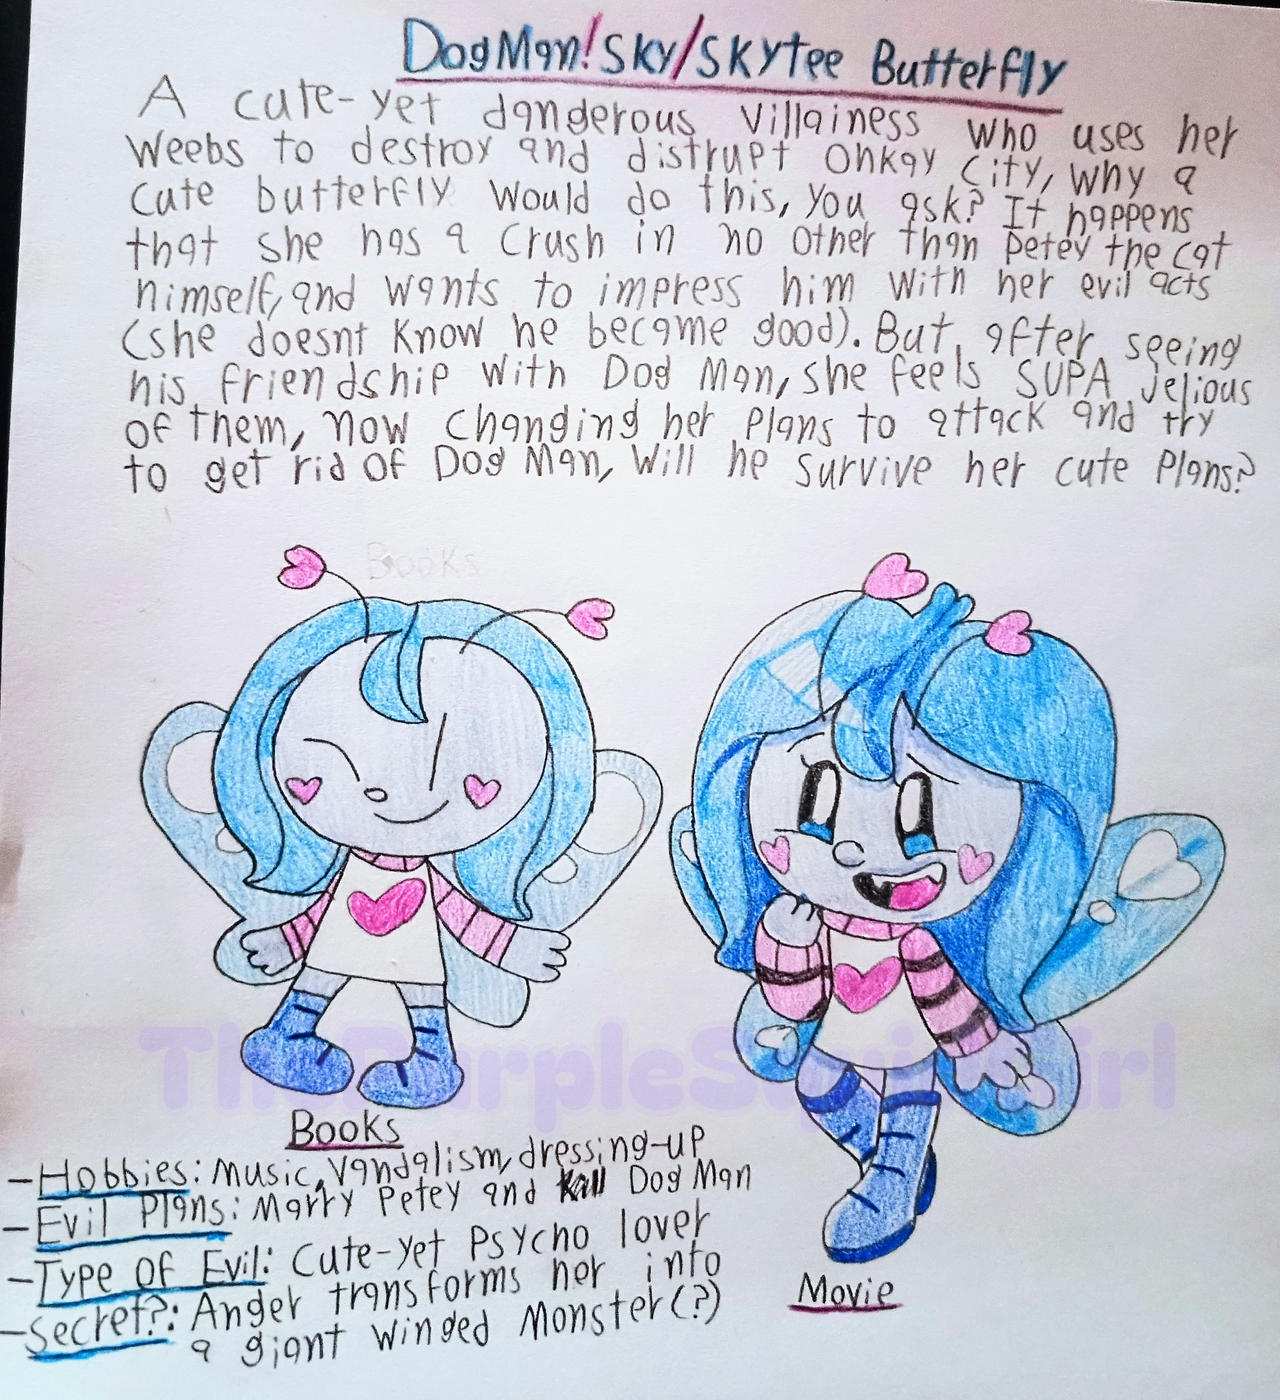 DogMan!Sky/Skytee Butterfly
A cute-yet dangerous villainess who uses her
weebs to destroy and distrupt Ohkay City, why a
cute butterfly would do this, you ask? It happens
that she has a crush in no other than Petey the cat
himself, and wants to impress him with her evil acts
(she doesnt know he became good). But, after seeing
his friendship with Dog Man, she feels SUPA jelious
of them, now changing her plans to attack and try
to get rid of Dog Man, Will he survive her cute plans?
Books
ThePurpleS Girl
Books
-Hobbies: Music, Vandalism, dressing-up
-Evil Plans: Marry Petey and Kill Dog Man
-Type Of Evil: Cute-yet Psycho lover
-Secret?: Anger transforms her into
a giant winged Monster(?)
Movie